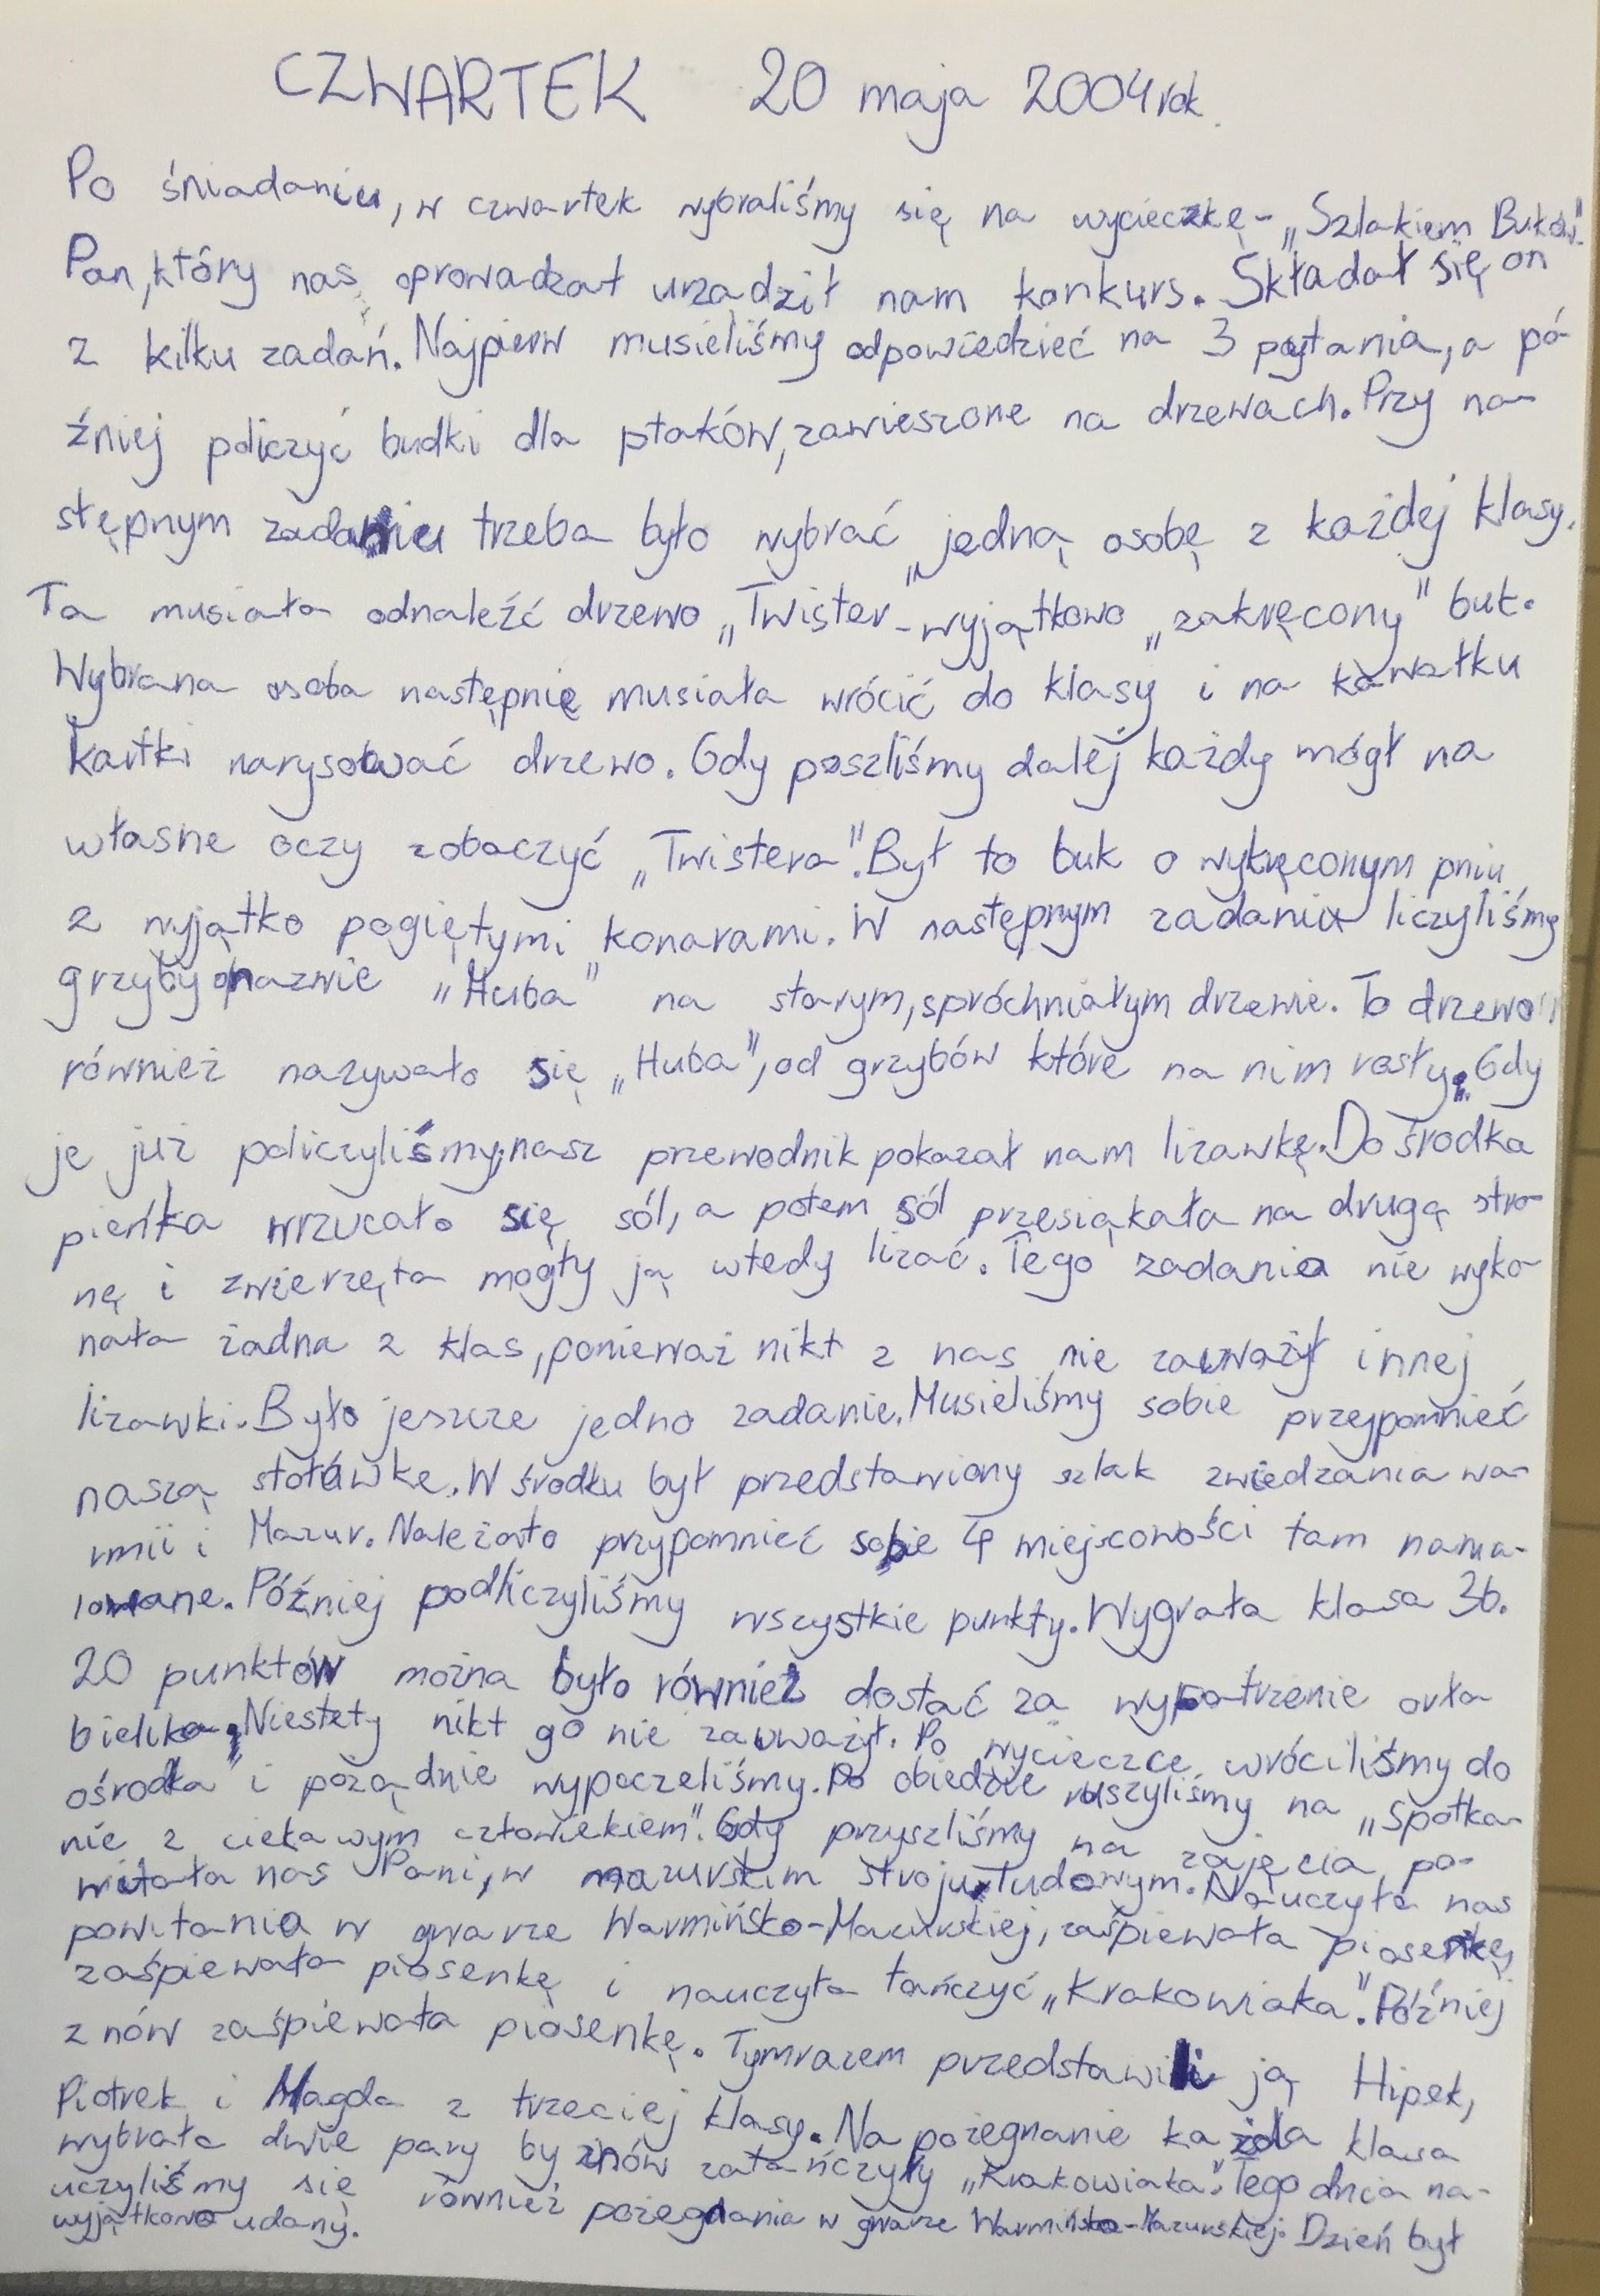 CZWARTEK 20 maja 2004 rok.
Po śniadaniu, w czwartek wybraliśmy się na wycieczkę - „Szlakiem Buków".
Pan, który nas oprowadzał urządził nam konkurs. Składał się on
z kilku zadań. Najpierw musieliśmy odpowiedzieć na 3 pytania, a pó-
źniej policzyć budki dla ptaków, zawieszone na drzewach. Przy na-
stępnym zadaniu trzeba było wybrać jedną osobę z każdej klasy.
Ta musiała odnaleźć drzewo „Twister - wyjątkowo „zakręcony" buk.
Wybrana osoba następnie musiała wrócić do klasy i na kawałku
kartki narysować drzewo. Gdy poszliśmy dalej każdy mógł na
własne oczy zobaczyć „Twistera". Był to buk o wykręconym pniu
z wyjątko pogiętymi konarami. W następnym zadaniu liczyliśmy
grzyby o nazwie „Huba" na starym, spróchniałym drzewie. To drzewo
również nazywało się „Huba", od grzybów które na nim rosły. Gdy
je już policzyliśmy, nasz przewodnik pokazał nam lizawkę. Do środka
pieńka wrzucało się sól, a potem sól przesiąkała na drugą stro-
nę i zwierzęta mogły ją wtedy lizać. Tego zadania nie wyko-
nała żadna z klas, ponieważ nikt z nas nie zauważył innej
lizawki. Było jeszcze jedno zadanie. Musieliśmy sobie przypomnieć
naszą stołówkę. W środku był przedstawiony szlak zwiedzania wa-
rmii i Mazur. Należało przypomnieć sobie 4 miejscowości tam nama-
lowane. Później podliczyliśmy wszystkie punkty. Wygrała klasa 3b.
20 punktów można było również dostać za wypatrzenie orła
bielika. Niestety nikt go nie zauważył. Po wycieczce wróciliśmy do
ośrodka i pożądnie wypoczeliśmy. Po obiedzie ruszyliśmy na „Spotka-
nie z ciekawym człowiekiem". Gdy przyszliśmy na zajęcia po-
witała nas Pani, w mazurskim stroju ludowym. Nauczyła nas
powitania w gwarze Warmińsko-Mazurskiej, zaśpiewała piosenkę
zaśpiewała piosenkę i nauczyła tańczyć „Krakowiaka". Później
znów zaśpiewała piosenkę. Tymrazem przedstawili ją Hipek,
Piotrek i Magda z trzeciej klasy. Na pożegnanie każda klasa
wybrała dwie pary by znów zatańczyły „Krakowiaka". Tego dnia na-
uczyliśmy się również pożegdania w gwarze Warmińsko-Mazurskiej. Dzień był
wyjątkowo udany.